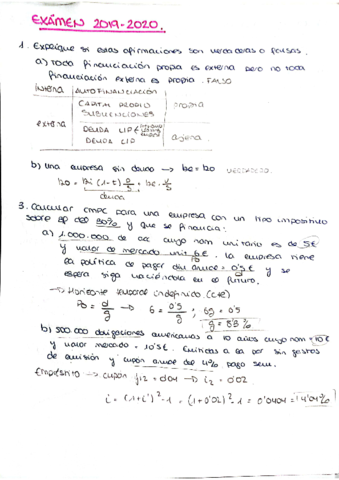 EXÁMEN 2019-2020.
1. Explique si estas afirmaciones son verdaderas o falsas.
a) Toda financiación propia es externa pero no toda
financiación externa es propia. FALSO
Interna AUTOFINANCIACIÓN
CAPITAL PROPIO propia
SUBVENCIONES
externa DEUDA L/P ajena
DEUDA C/P
b) Una empresa sin deuda → ko = ke VERDADERO
deuda
3. Calcular CMPC para una empresa con un tipo impositivo
sobre Bº del 30% y que se financia:
a) 1.000.000 de acc cuyo nom unitario es de 5€
y valor de mercado unit 6€. La empresa tiene
la política de pagar div anual = 0'5€ y se
espera siga haciéndolo en el futuro.
→ Horizonte temporal indefinido (cte)
Po = d/g → 6 = 0'5/g ; 6g = 0'5
b) 500 000 obligaciones americanas a 10 años cuyo nom = 10€
y valor mercado = 10'5€. Emitidas a la par sin gastos
de emisión y cupón anual del 4% pago sem.
Empréstito → cupón j12 = 0'04 → i2 = 0'02
i = (1+i')² - 1 = (1+0'02)² - 1 = 0'0404 = 4'04%